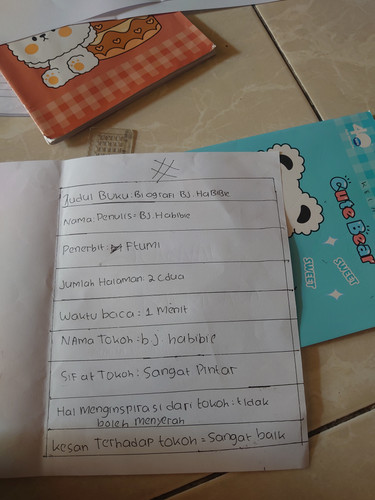 Judul Buku: Biografi BJ. HaBiBie
Nama: Penulis= BJ. Habibie
Penerbit: Ftumi
Jumlah Halaman: 2 Cdua
Waktu baca: 1 Menit
NAma Tokoh: b.j habibie
Sifat Tokoh: Sangat Pintar
Hal Menginspirasi dari tokoh: tidak
boleh menyerah
kesan Terhadap tokoh = Sangat baik
Cute Bear
SWEET
SWEET